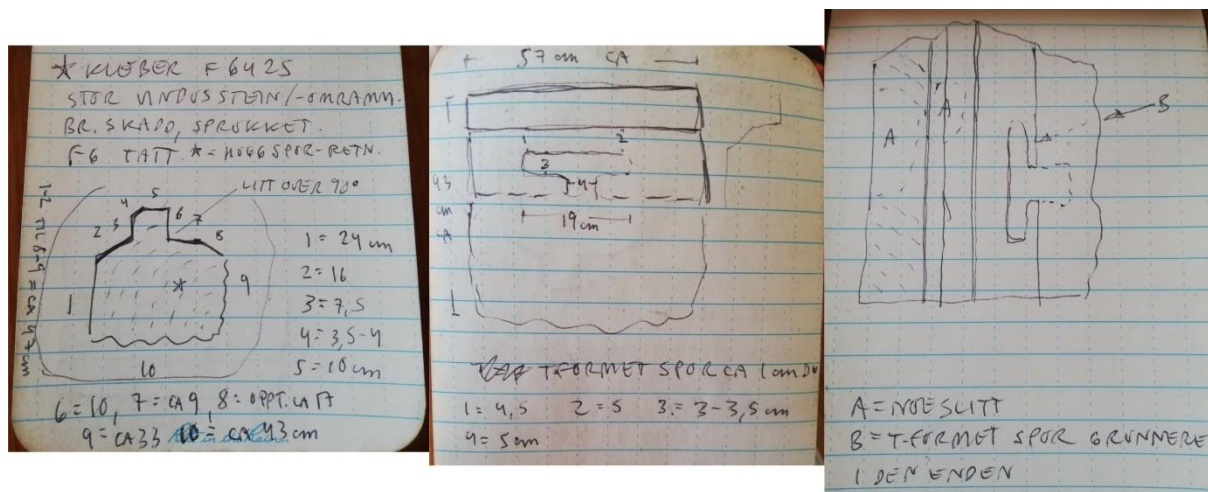 * KLEBER F6425
STOR VINDUSSTEIN/-OMRAMM.
BR. SKADD, SPRUKKET.
F6 TATT * = HUGGSPOR-RETN.
LITT OVER 90°
1-2 TIL 8-9 = CA 47cm
4 5 6
2 3 7 8
1 * 9
10
1 = 24 cm
2 = 16
3 = 7,5
4 = 3,5-4
5 = 10 cm
6 = 10, 7 = CA 9, 8 = OPPT. CA 17
9 = CA 33 10 = CA 43 cm
57 cm CA
1
2
3
4
43 cm CA
19 cm
T-FORMET SPOR CA 1 cm
1 = 4,5 2 = 5 3 = 3-3,5 cm
4 = 5 cm
A
A
B
A = NOE SLITT
B = T-FORMET SPOR GRUNNERE
I DEN ENDEN